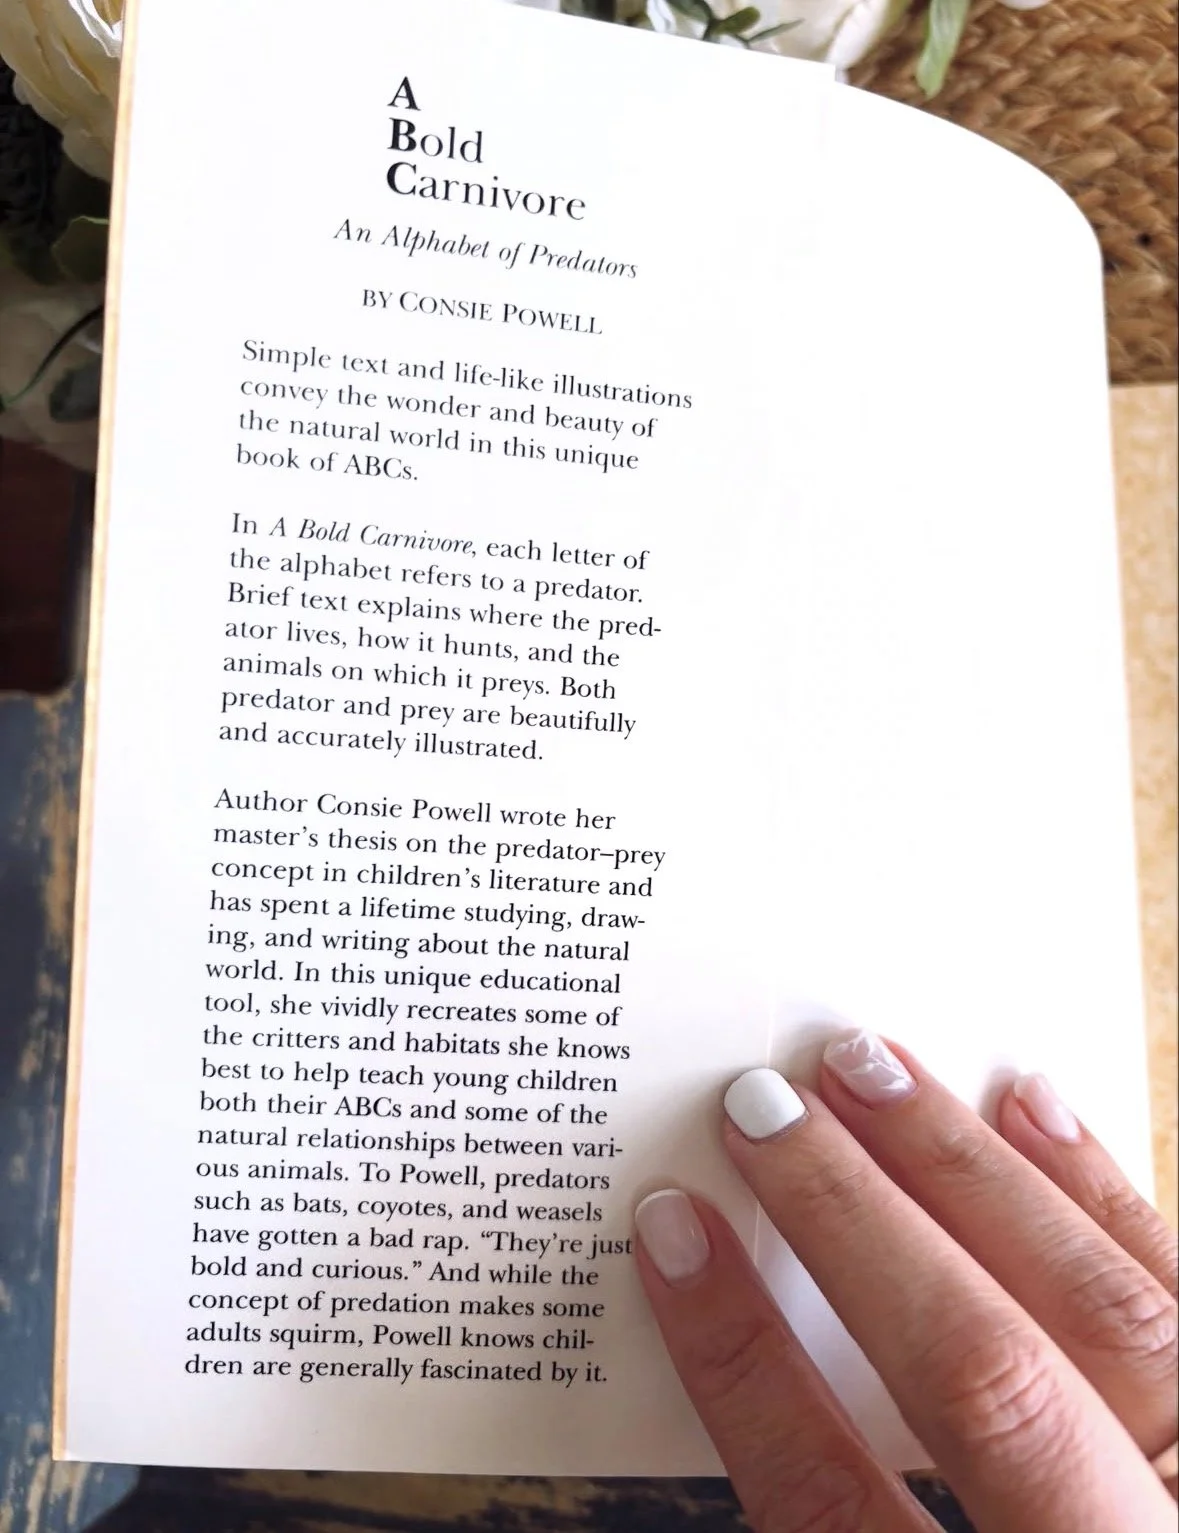 A
Bold
Carnivore
An Alphabet of Predators
BY CONSIE POWELL
Simple text and life-like illustrations
convey the wonder and beauty of
the natural world in this unique
book of ABCs.
In A Bold Carnivore, each letter of
the alphabet refers to a predator.
Brief text explains where the pred-
ator lives, how it hunts, and the
animals on which it preys. Both
predator and prey are beautifully
and accurately illustrated.
Author Consie Powell wrote her
master's thesis on the predator–prey
concept in children's literature and
has spent a lifetime studying, draw-
ing, and writing about the natural
world. In this unique educational
tool, she vividly recreates some of
the critters and habitats she knows
best to help teach young children
both their ABCs and some of the
natural relationships between vari-
ous animals. To Powell, predators
such as bats, coyotes, and weasels
have gotten a bad rap. “They're just
bold and curious.” And while the
concept of predation makes some
adults squirm, Powell knows chil-
dren are generally fascinated by it.